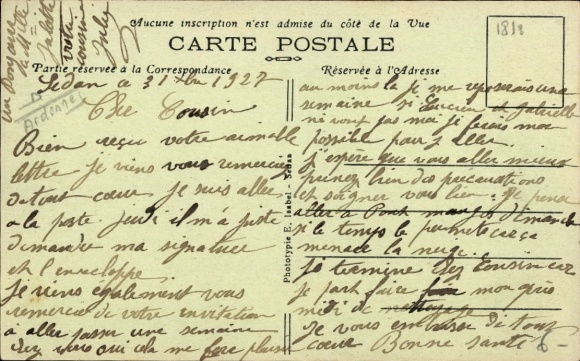 Aucune inscription n'est admise du côté de la Vue
CARTE POSTALE
Partie réservée à la Correspondance
Réservée à l'Adresse
181
un Bonjour
votre
cousine
Julie
Ardenne
Sedan le 31 1927
Cher Cousin
Bien reçu votre aimable
lettre je viens vous remercier
de tout cœur je suis aller
a la poste jeudi il m'a juste
demander ma signature
et l'enveloppe
je viens également vous
remercier de votre invitation
à aller passer une semaine
chez vous oui cela me fera plaisir
au moins la je me reposerais une
semaine si Lucien et Gabrielle
ne vont pas moi je ferais mon
possible pour y aller.
j'espère que vous aller mieux
prenez bien des precautions
et soigner vous bien. Je pense
aller à Pont dimanche
si le temps le permet car ça
menace la neige.
je termine cher Cousin car
je part faire mon après
midi de nettoyage
Je vous embrasse de tout
cœur Bonne santé
Phototypie E. Isabel - Sedan